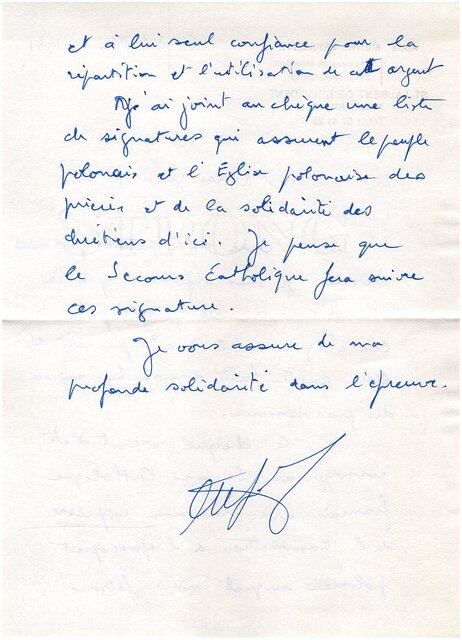 et à lui seul confiance pour la
répartition et l'utilisation de cet argent
J'ai joint au chèque une liste
de signatures qui assurent le peuple
polonais et l'Église polonaise des
prières et de la solidarité des
chrétiens d'ici. Je pense que
le Secours Catholique fera suivre
ces signature.
Je vous assure de ma
profonde solidarité dans l'épreuve.